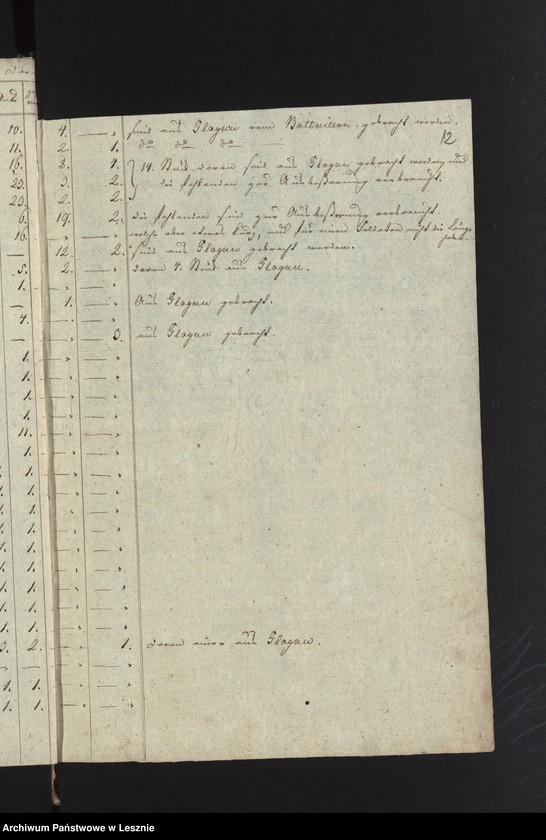 12
10. 4. — „ sind aus Glogau vom Battaillon gebracht worden.
11. 2. 1. do do do
16. 8. 4. 14. Stück davon sind aus Glogau gebracht worden und
23. 3. 2. die fehlenden zur Ausbeßerung verbraucht.
23. 2. 2.
6. 19. 2. die fehlenden sind zur Ausbeßerung verbraucht.
16. „ — „ welche aber etwas kurz, und für einen Soldaten nicht die Länge
haben.
— 12. 2. sind aus Glogau gebracht worden.
5. 2. — „ davon 4. Stück aus Glogau.
1. „ — „
— 1. — „ Aus Glogau gebracht.
4. „ — „
— „ 3. aus Glogau gebracht.
1. „ — „
1. „ — „
1. „ — „
1. „ — „
11. „ — „
1. „ — „
1. „ — „
1. „ — „
1. „ — „
1. „ — „
1. „ — „
1. „ — „
1. „ — „
1. „ — „
1. „ — „
3. 2. „ — 1. davon einer aus Glogau.
— — „ — „
1. 1. „ — „
1. 1. „ — „
Archiwum Państwowe w Lesznie